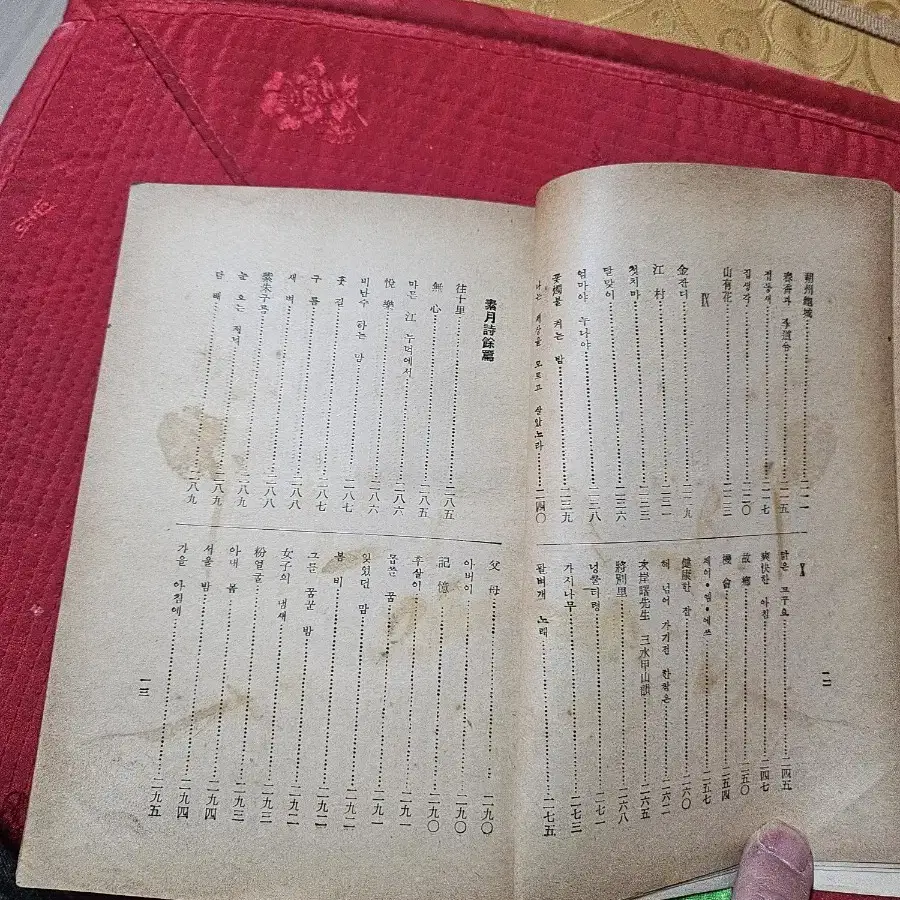 朔州龜城 二一一
春香과 李道令 二一五
접동새 二一七
집생각 二二〇
山有花 二二三
Ⅳ
金잔디 二二九
江村
첫치마 二三三
달맞이 二三六
엄마야 누나야 二三八
꽃燭불 켜는 밤 二三九
나는 세상을 모르고 살았노라 二四〇
Ⅴ
닭은 꼬꾸요 二四五
爽快한 아침 二四七
故鄕 二五〇
機會 二五四
제이·엠·에쓰 二五七
健康한 잠 二六〇
해 넘어 가기전 한참은 二六二
次岸曙先生 三水甲山韻 二六五
將別里 二六八
넝쿨타령 二七一
가지나무 二七三
팔벼개 노래 二七五
一二
素月詩餘篇
往十里 二八五
無心 二八五
마른 江 두덕에서 二八六
悅樂 二八六
비난수 하는 맘 二八七
꽃 길 二八七
구름 二八七
새벽 二八八
紫朱구름 二八八
눈 오는 저녁 二八九
담배 二八九
父母 二九〇
아버이 二九〇
記憶 二九〇
후살이 二九一
몹쓸 꿈 二九一
잊었던 맘 二九二
봄비 二九二
그를 꿈꾼 밤 二九二
女子의 냄새 二九二
粉얼굴 二九三
아내 몸 二九三
서울 밤 二九四
가을 아침에 二九五
一三